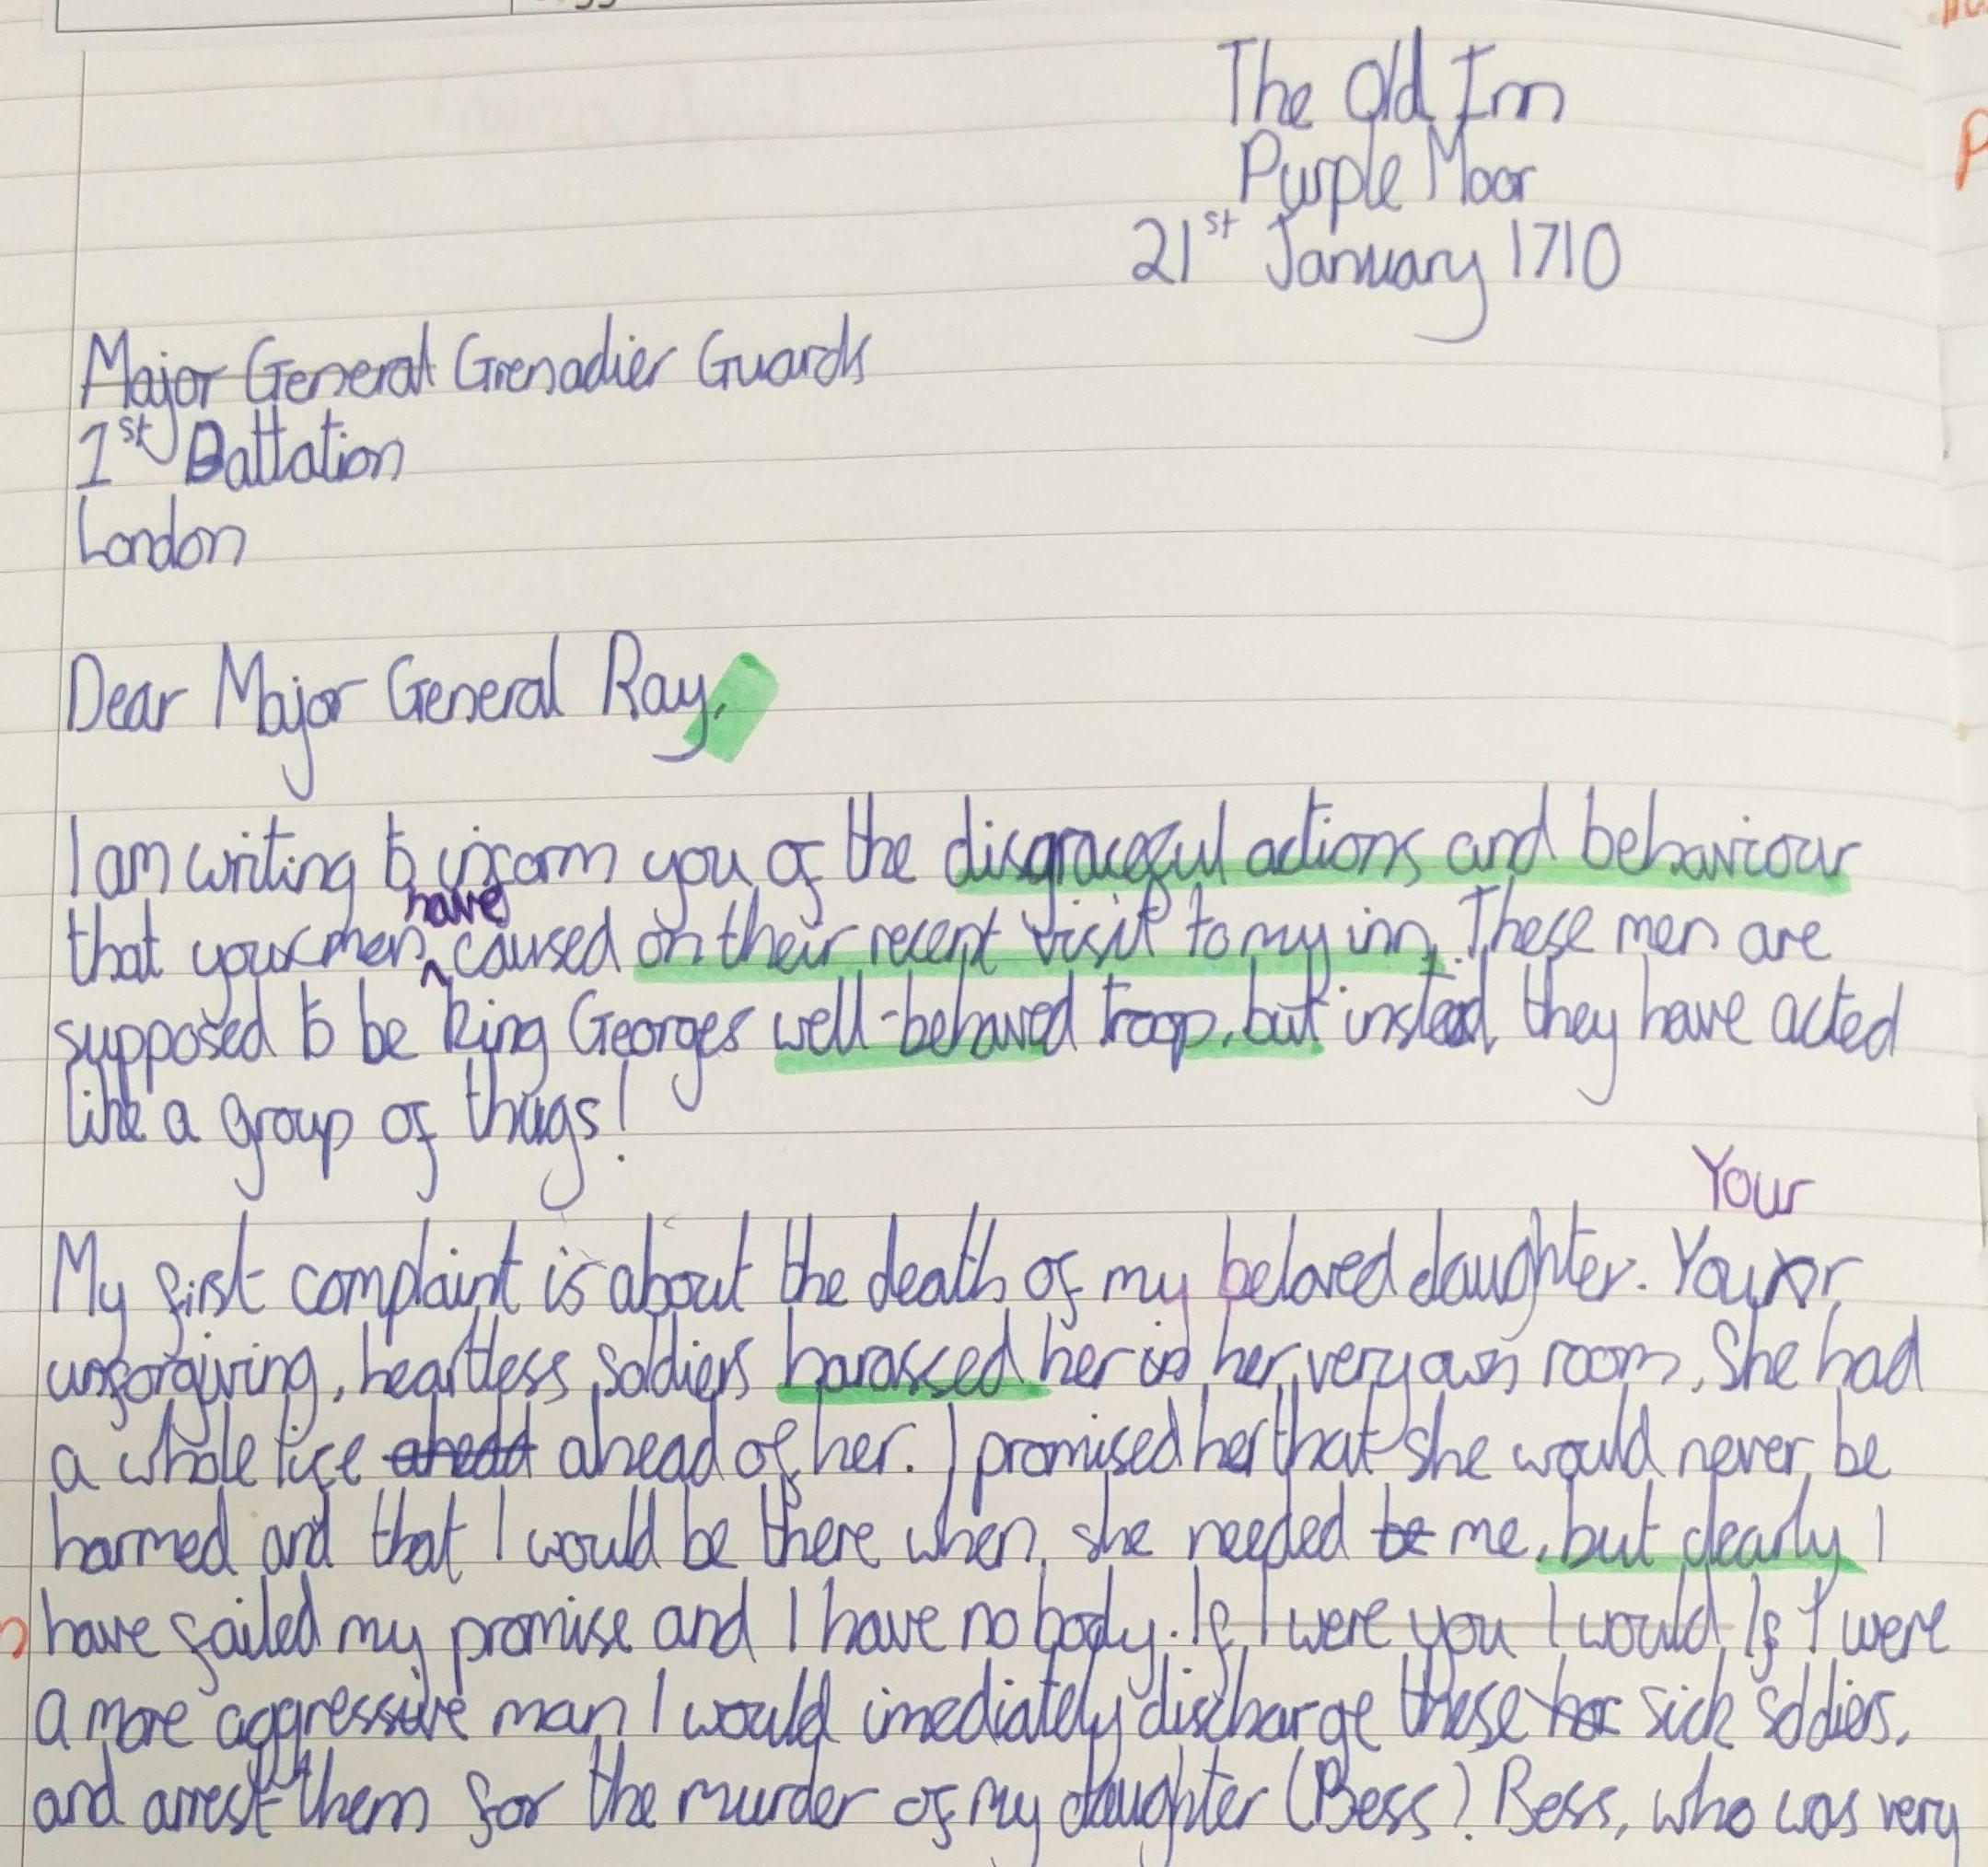 The Old Inn
Purple Moor
21st January 1710
Major General Grenadier Guards
1st Battation
London
Dear Major General Ray,
I am writing to inform you of the disgraceful actions and behaviour
have
that your men ^ caused on their recent visit to my inn. These men are
supposed to be King Georges well-behaved troop, but instead they have acted
like a group of thugs!
Your
My first complaint is about the death of my beloved daughter.
unforgiving, heartless soldiers harassed her in her very own room. She had
a whole life ahead ahead of her. I promised her that she would never be
harmed and that I would be there when she needed be me, but clearly I
have failed my promise and I have no body. If I were you I would If I were
a more aggressive man I would imediately discharge these sick soldiers.
and arrest them for the murder of my daughter (Bess). Bess, who was very